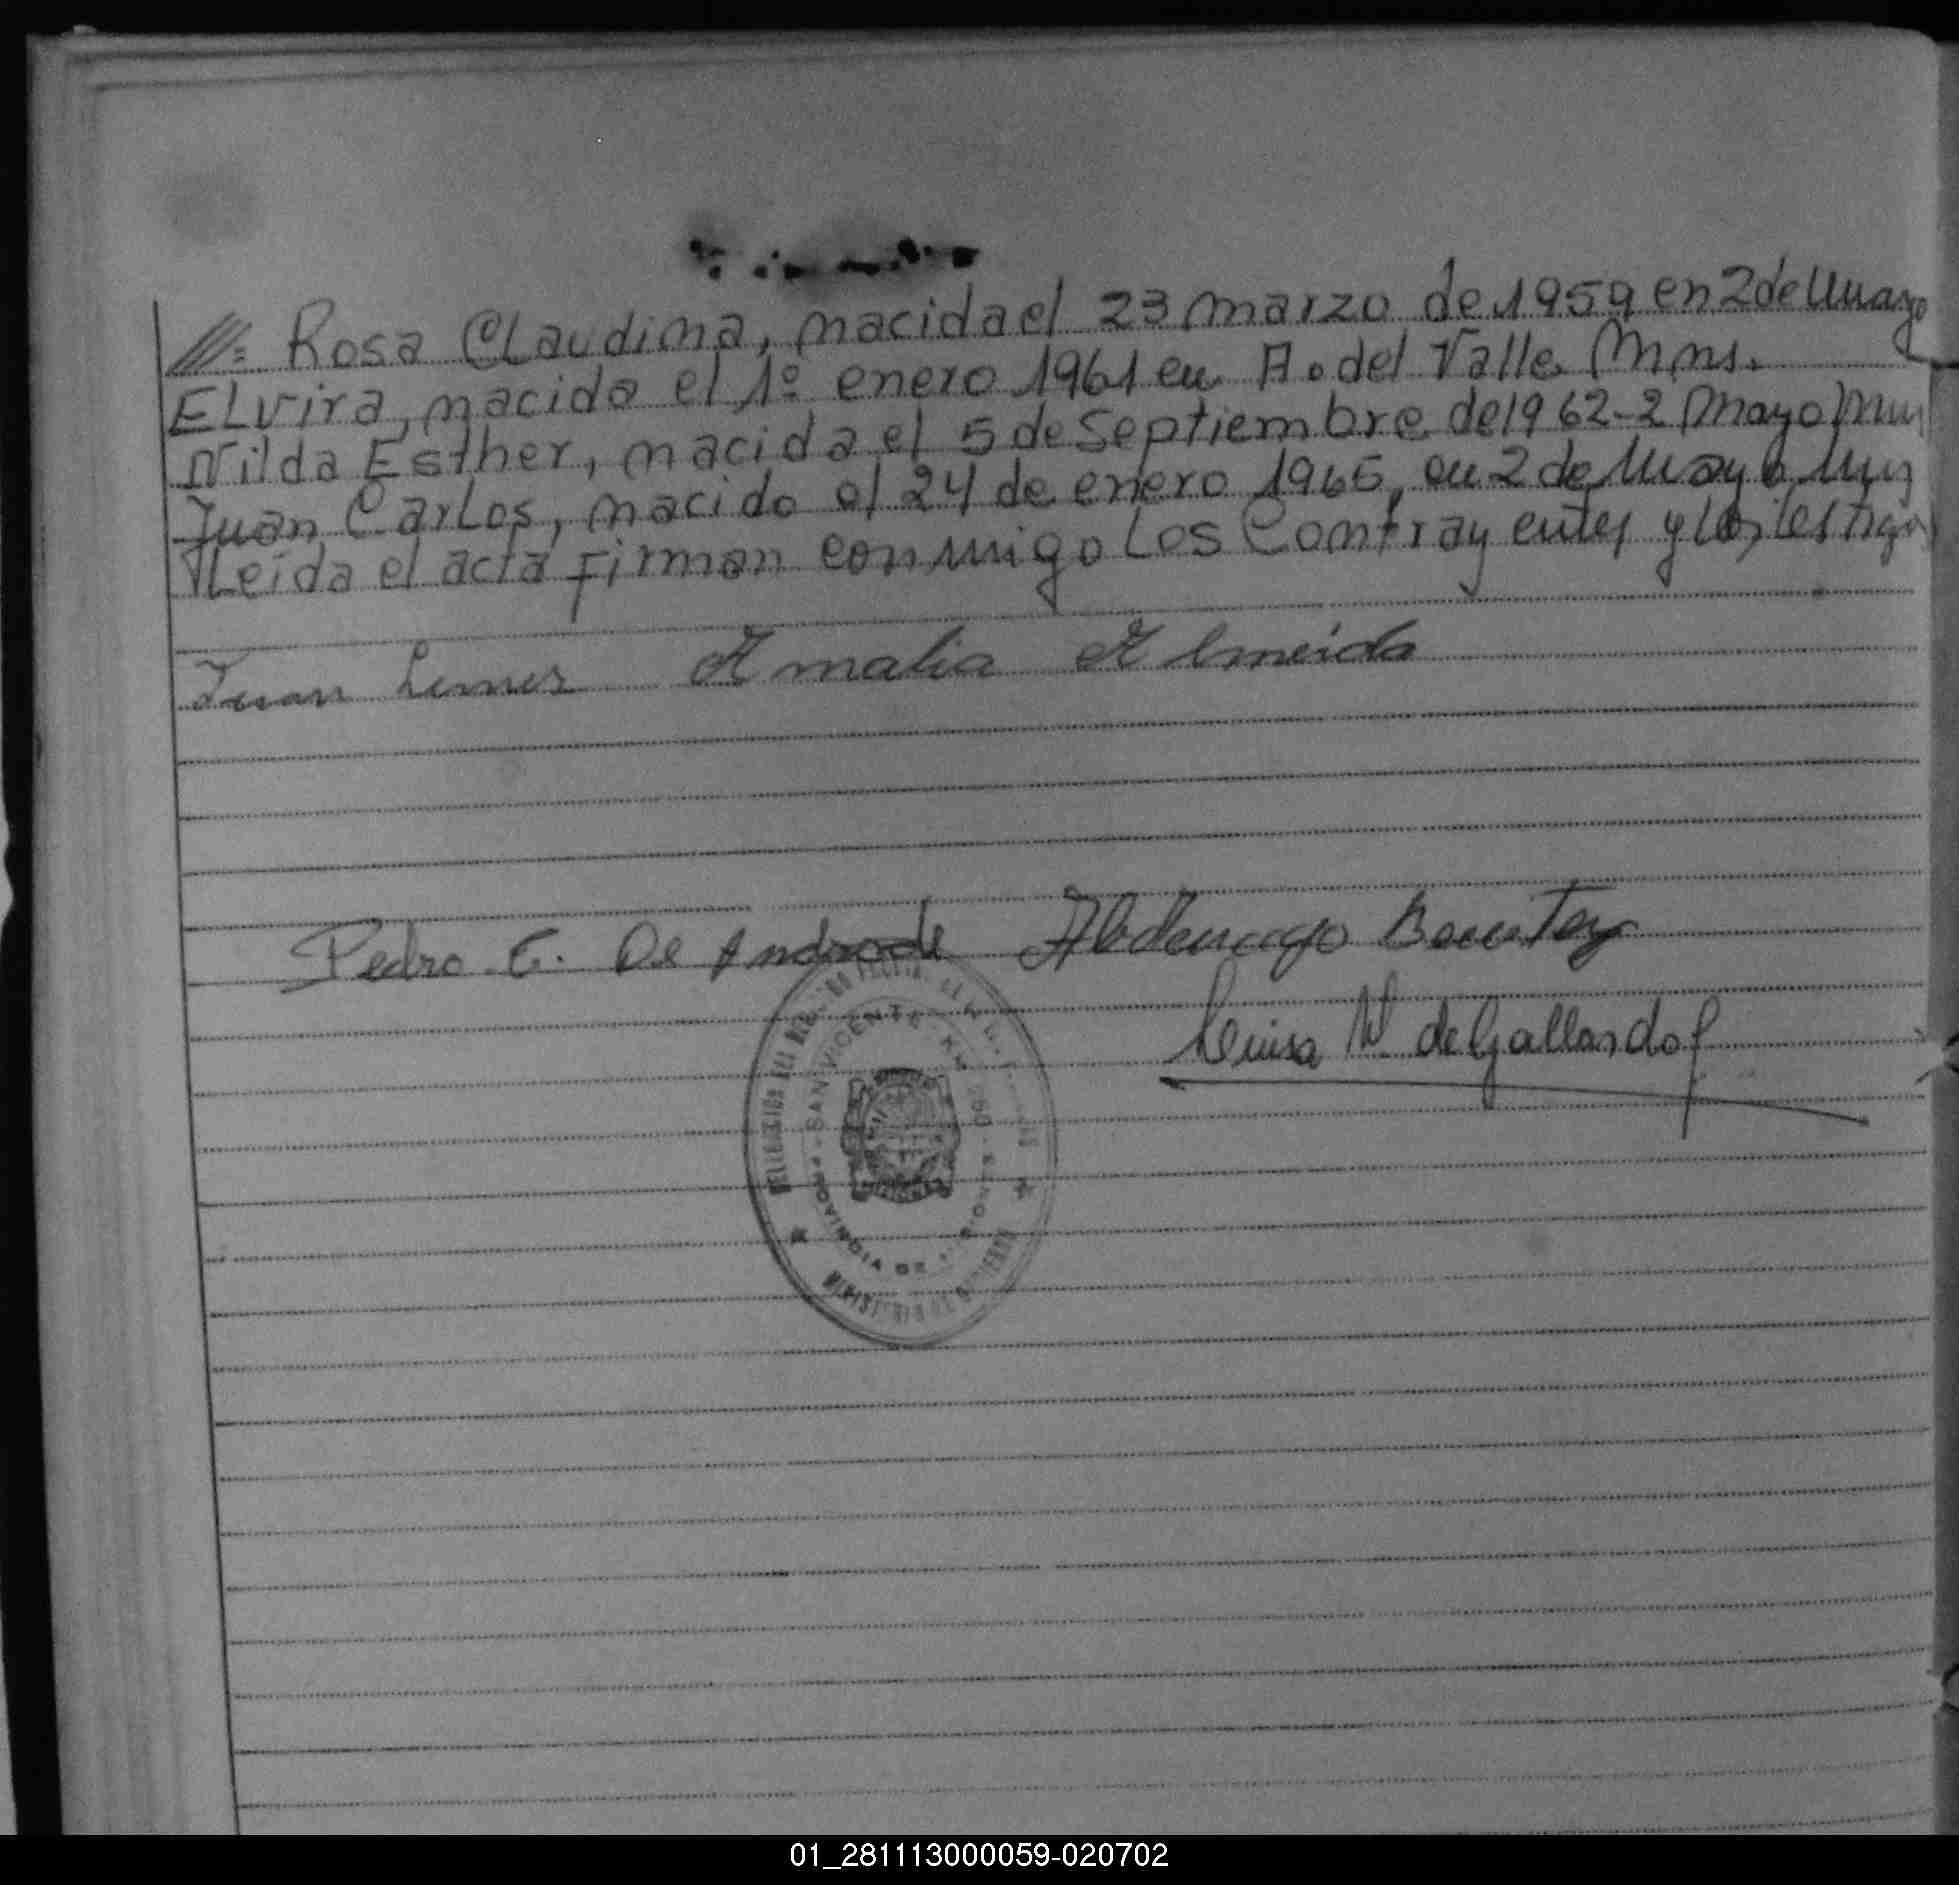 ///= Rosa Claudina, nacida el 23 marzo de 1959 en 2 de Mayo
Elvira, nacida el 1º enero 1961 en A. del Valle Mns.
Nilda Esther, nacida el 5 de Septiembre de 1962-2 Mayo Mns
Juan Carlos, nacido el 24 de enero 1965, en 2 de Mayo Mns
Leída el acta firman conmigo los Contrayentes y los testigos
Juan Lemes Amalia Almeida
Pedro E. De Andrade Abdenago Benitez
Luisa N. de Gallardo
SAN VICENTE
PROVINCIA DE MISIONES
MINISTERIO DE GOBIERNO
01_281113000059-020702